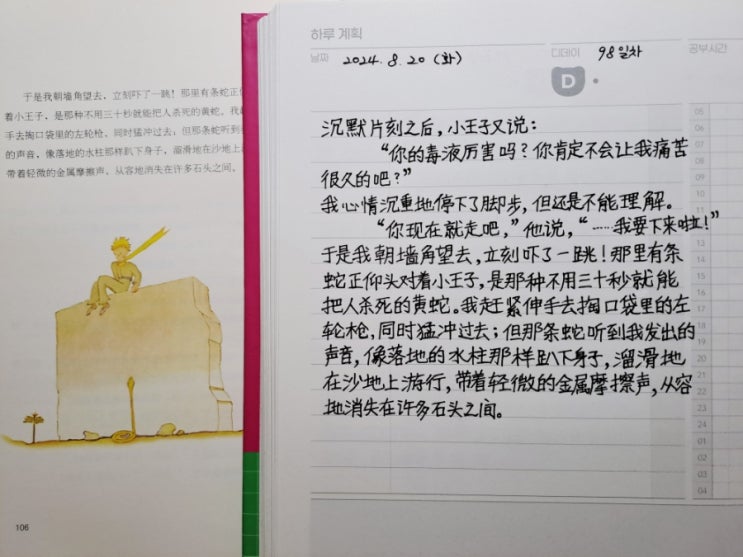 于是我朝墙角望去，立刻吓了一跳！那里有条蛇正
着小王子，是那种不用三十秒就能把人杀死的黄蛇。我
手去掏口袋里的左轮枪，同时猛冲过去；但那条蛇听到
的声音，像落地的水柱那样趴下身子，溜滑地在沙地上
带着轻微的金属摩擦声，从容地消失在许多石头之间。
106
하루 계획
날짜 2024. 8. 20 (화)
디데이 98일차
공부시간
D
沉默片刻之后，小王子又说：
“你的毒液厉害吗？你肯定不会让我痛苦
很久的吧？”
我心情沉重地停下了脚步，但还是不能理解。
“你现在就走吧，”他说，“……我要下来啦！”
于是我朝墙角望去，立刻吓了一跳！那里有条
蛇正仰头对着小王子，是那种不用三十秒就能
把人杀死的黄蛇。我赶紧伸手去掏口袋里的左
轮枪，同时猛冲过去；但那条蛇听到我发出的
声音，像落地的水柱那样趴下身子，溜滑地
在沙地上游行，带着轻微的金属摩擦声，从容
地消失在许多石头之间。
05
06
07
08
09
10
11
12
13
14
15
16
17
18
19
20
21
22
23
24
01
02
03
04